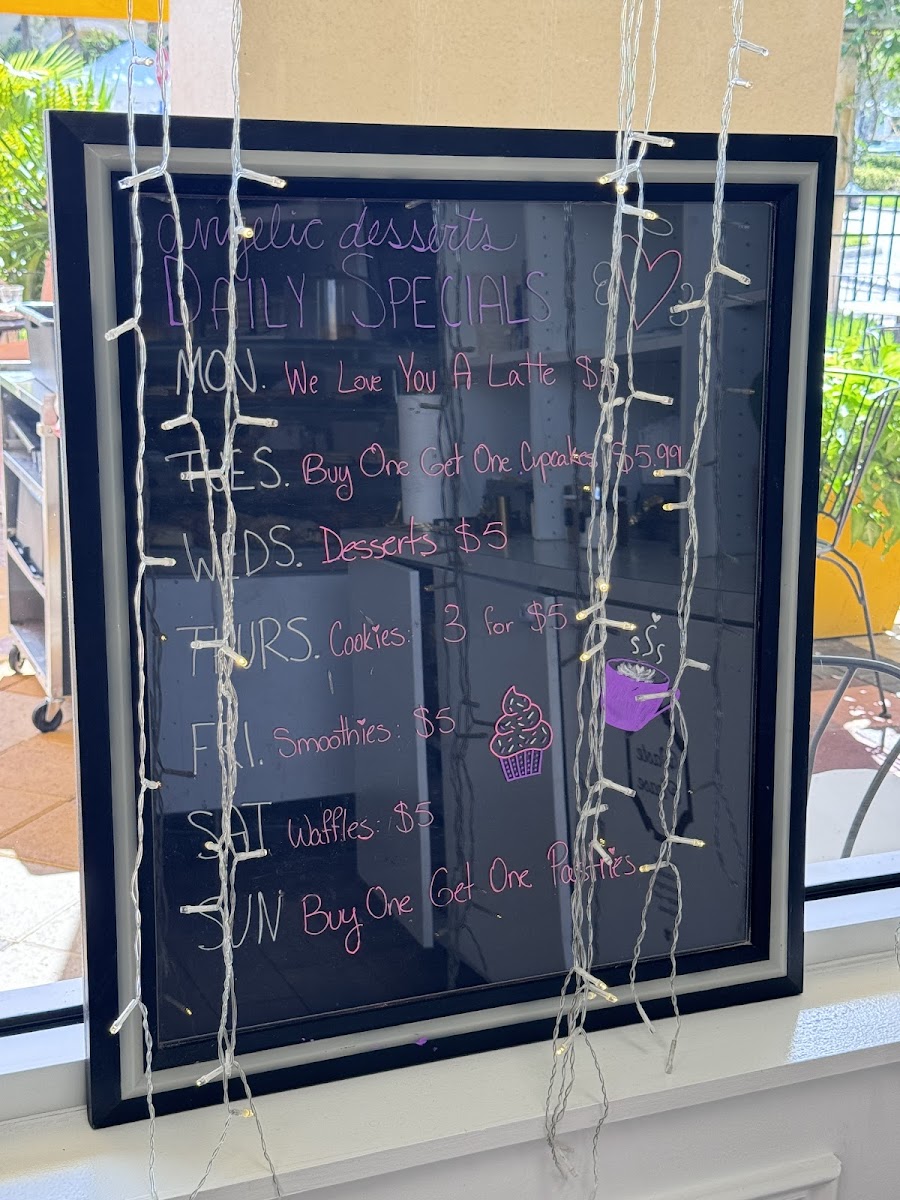 angelic desserts
DAILY SPECIALS
MON. We Love You A Latte
TUES. Buy One Get One Cupcakes $5.99
WEDS. Desserts $5
THURS. Cookies: 3 for $5
FRI. Smoothies: $5
SAT Waffles: $5
SUN Buy One Get One Pastries